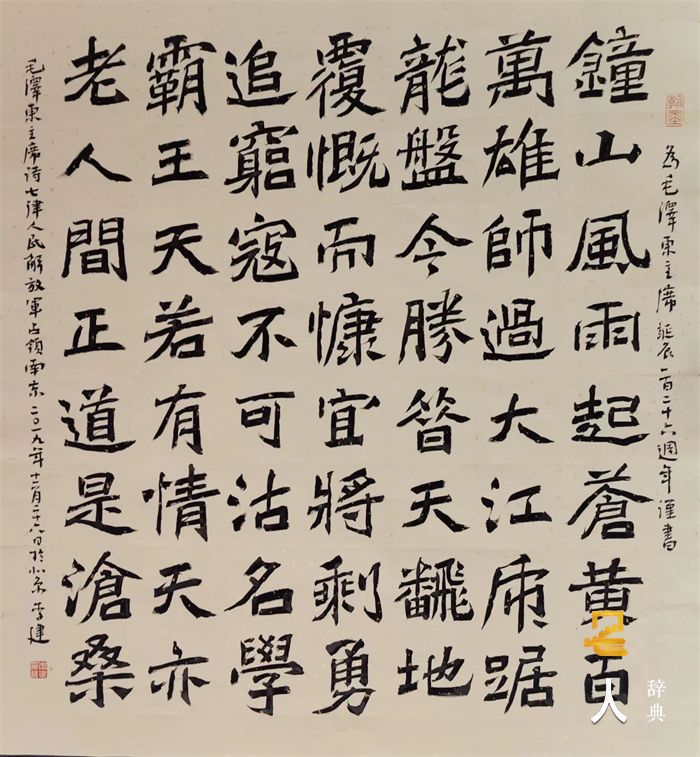 翰墨
為毛澤東主席誕辰一百二十六週年謹書
鐘山風雨起蒼黄百
萬雄師過大江虎踞
龍盤今勝昔天飜地
覆慨而慷宜將剩勇
追窮寇不可沽名學
霸王天若有情天亦
老人間正道是滄桑
毛澤東主席诗七律人民解放軍占领南京二〇一九年十二月二十六日於北京李建
人
辞典